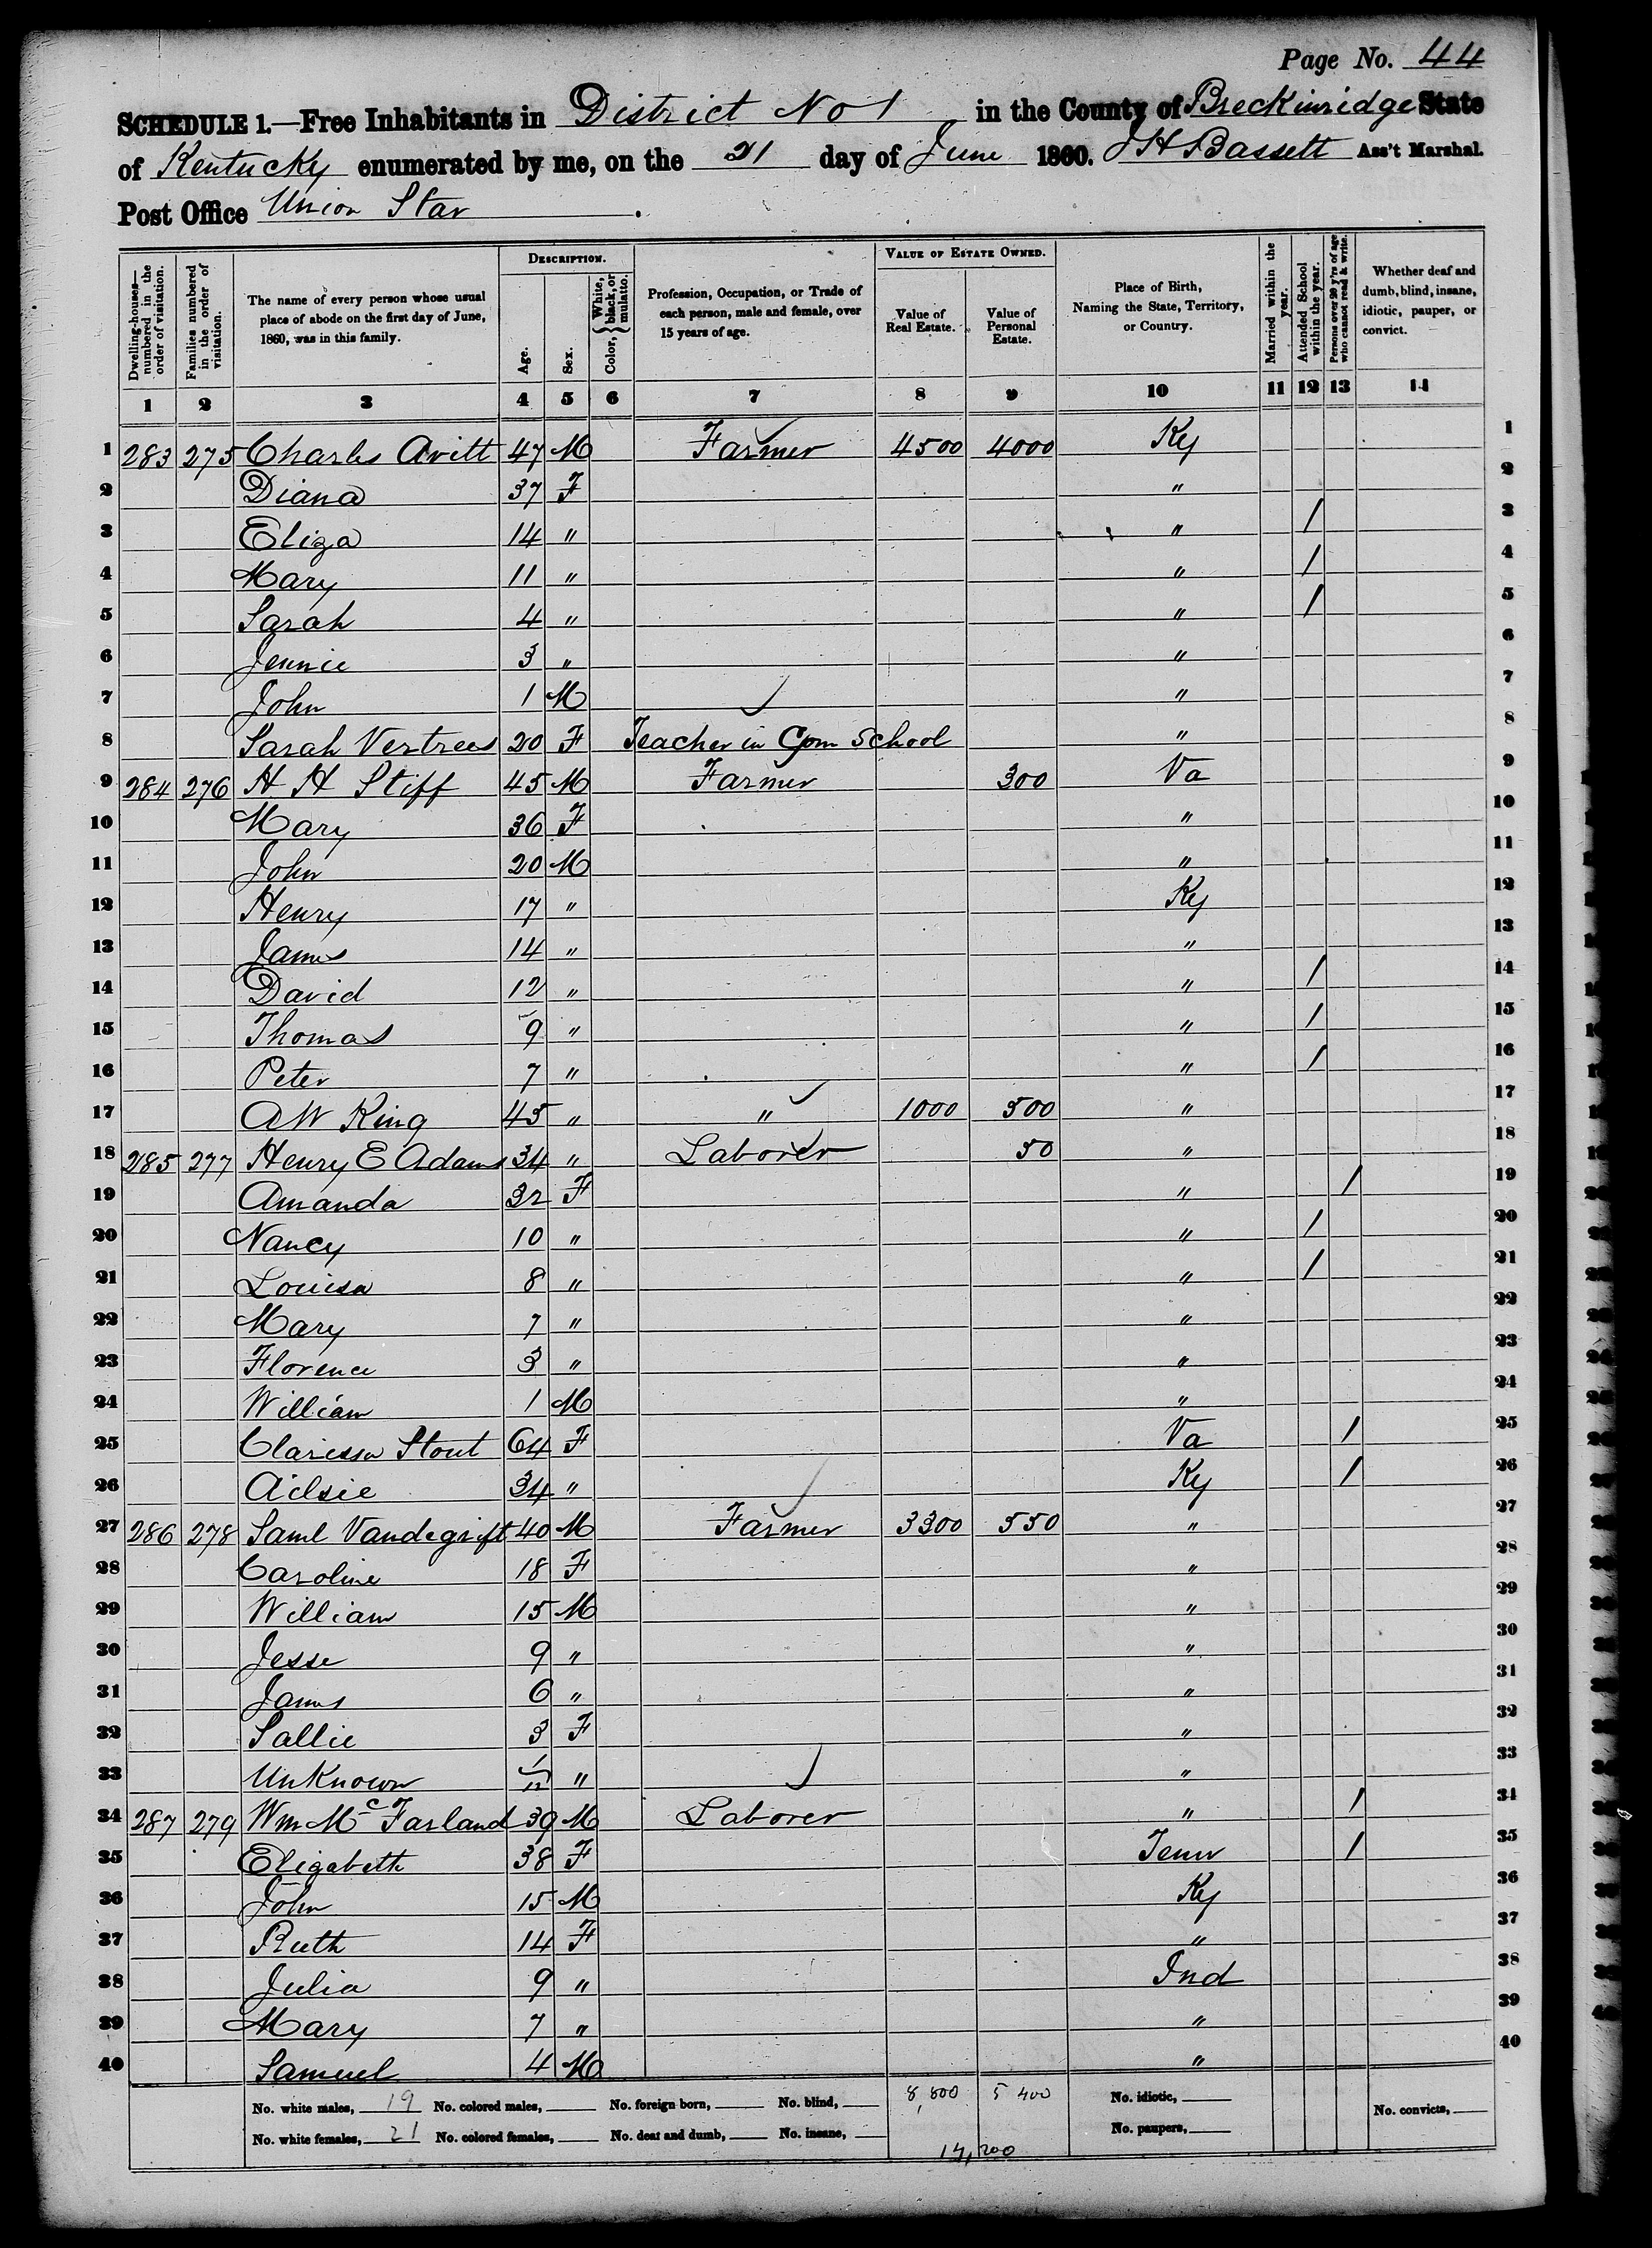 Page No. 44
SCHEDULE 1.—Free Inhabitants in District No 1 in the County of Breckinridge State
of Kentucky enumerated by me, on the 21 day of June 1860. J H Bassett Ass't Marshal.
Post Office Union Star.
Dwelling-houses—numbered in the order of visitation. Families numbered in the order of visitation. The name of every person whose usual place of abode on the first day of June, 1860, was in this family. DESCRIPTION. Age. Sex. Color, { White, black, or mulatto. Profession, Occupation, or Trade of each person, male and female, over 15 years of age. VALUE OF ESTATE OWNED. Value of Real Estate. Value of Personal Estate. Place of Birth, Naming the State, Territory, or Country. Married within the year. Attended School within the year. Persons over 20 y'rs of age who cannot read & write. Whether deaf and dumb, blind, insane, idiotic, pauper, or convict.
1 2 3 4 5 6 7 8 9 10 11 12 13 14
1 283 275 Charles Avitt 47 M Farmer 4500 4000 Ky 1
2 Diana 37 F " 2
3 Eliza 14 " " / 3
4 Mary 11 " " / 4
5 Sarah 4 " " / 5
6 Jennie 3 " " 6
7 John 1 M " 7
8 Sarah Vertrees 20 F Teacher in Com School " 8
9 284 276 H H Stiff 45 M Farmer 300 Va 9
10 Mary 36 F " 10
11 John 20 M " 11
12 Henry 17 " Ky 12
13 James 14 " " 13
14 David 12 " " / 14
15 Thomas 9 " " / 15
16 Peter 7 " " / 16
17 A W King 45 " " 1000 500 " 17
18 285 277 Henry E Adams 34 " Laborer 50 " 18
19 Amanda 32 F " / 19
20 Nancy 10 " " / 20
21 Louisa 8 " " / 21
22 Mary 7 " " 22
23 Florence 3 " " 23
24 William 1 M " 24
25 Claressa Stout 64 F Va / 25
26 Ailsie 34 " Ky / 26
27 286 278 Saml Vandegrift 40 M Farmer 3300 550 " 27
28 Caroline 18 F " 28
29 William 15 M " 29
30 Jesse 9 " " 30
31 James 6 " " 31
32 Sallie 3 F " 32
33 Unknown 1/12 " " 33
34 287 279 Wm McFarland 39 M Laborer " / 34
35 Elizabeth 38 F Tenn / 35
36 John 15 M Ky 36
37 Ruth 14 F " 37
38 Julia 9 " Ind 38
39 Mary 7 " " 39
40 Samuel 4 M " 40
No. white males, 19 No. colored males, No. foreign born, No. blind, 8,800 5 400 No. idiotic,
No. white females, 21 No. colored females, No. deaf and dumb, No. insane, No. paupers, No. convicts,
14,200